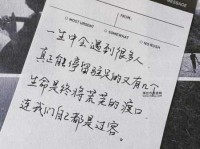 MESSAGE
FROM:
MOST URGENT
SOMEWHAT
一生中会遇到很多人
真正能停留驻足的又有几个
生命是终将荒芜的渡口
连我们自己都是过客。